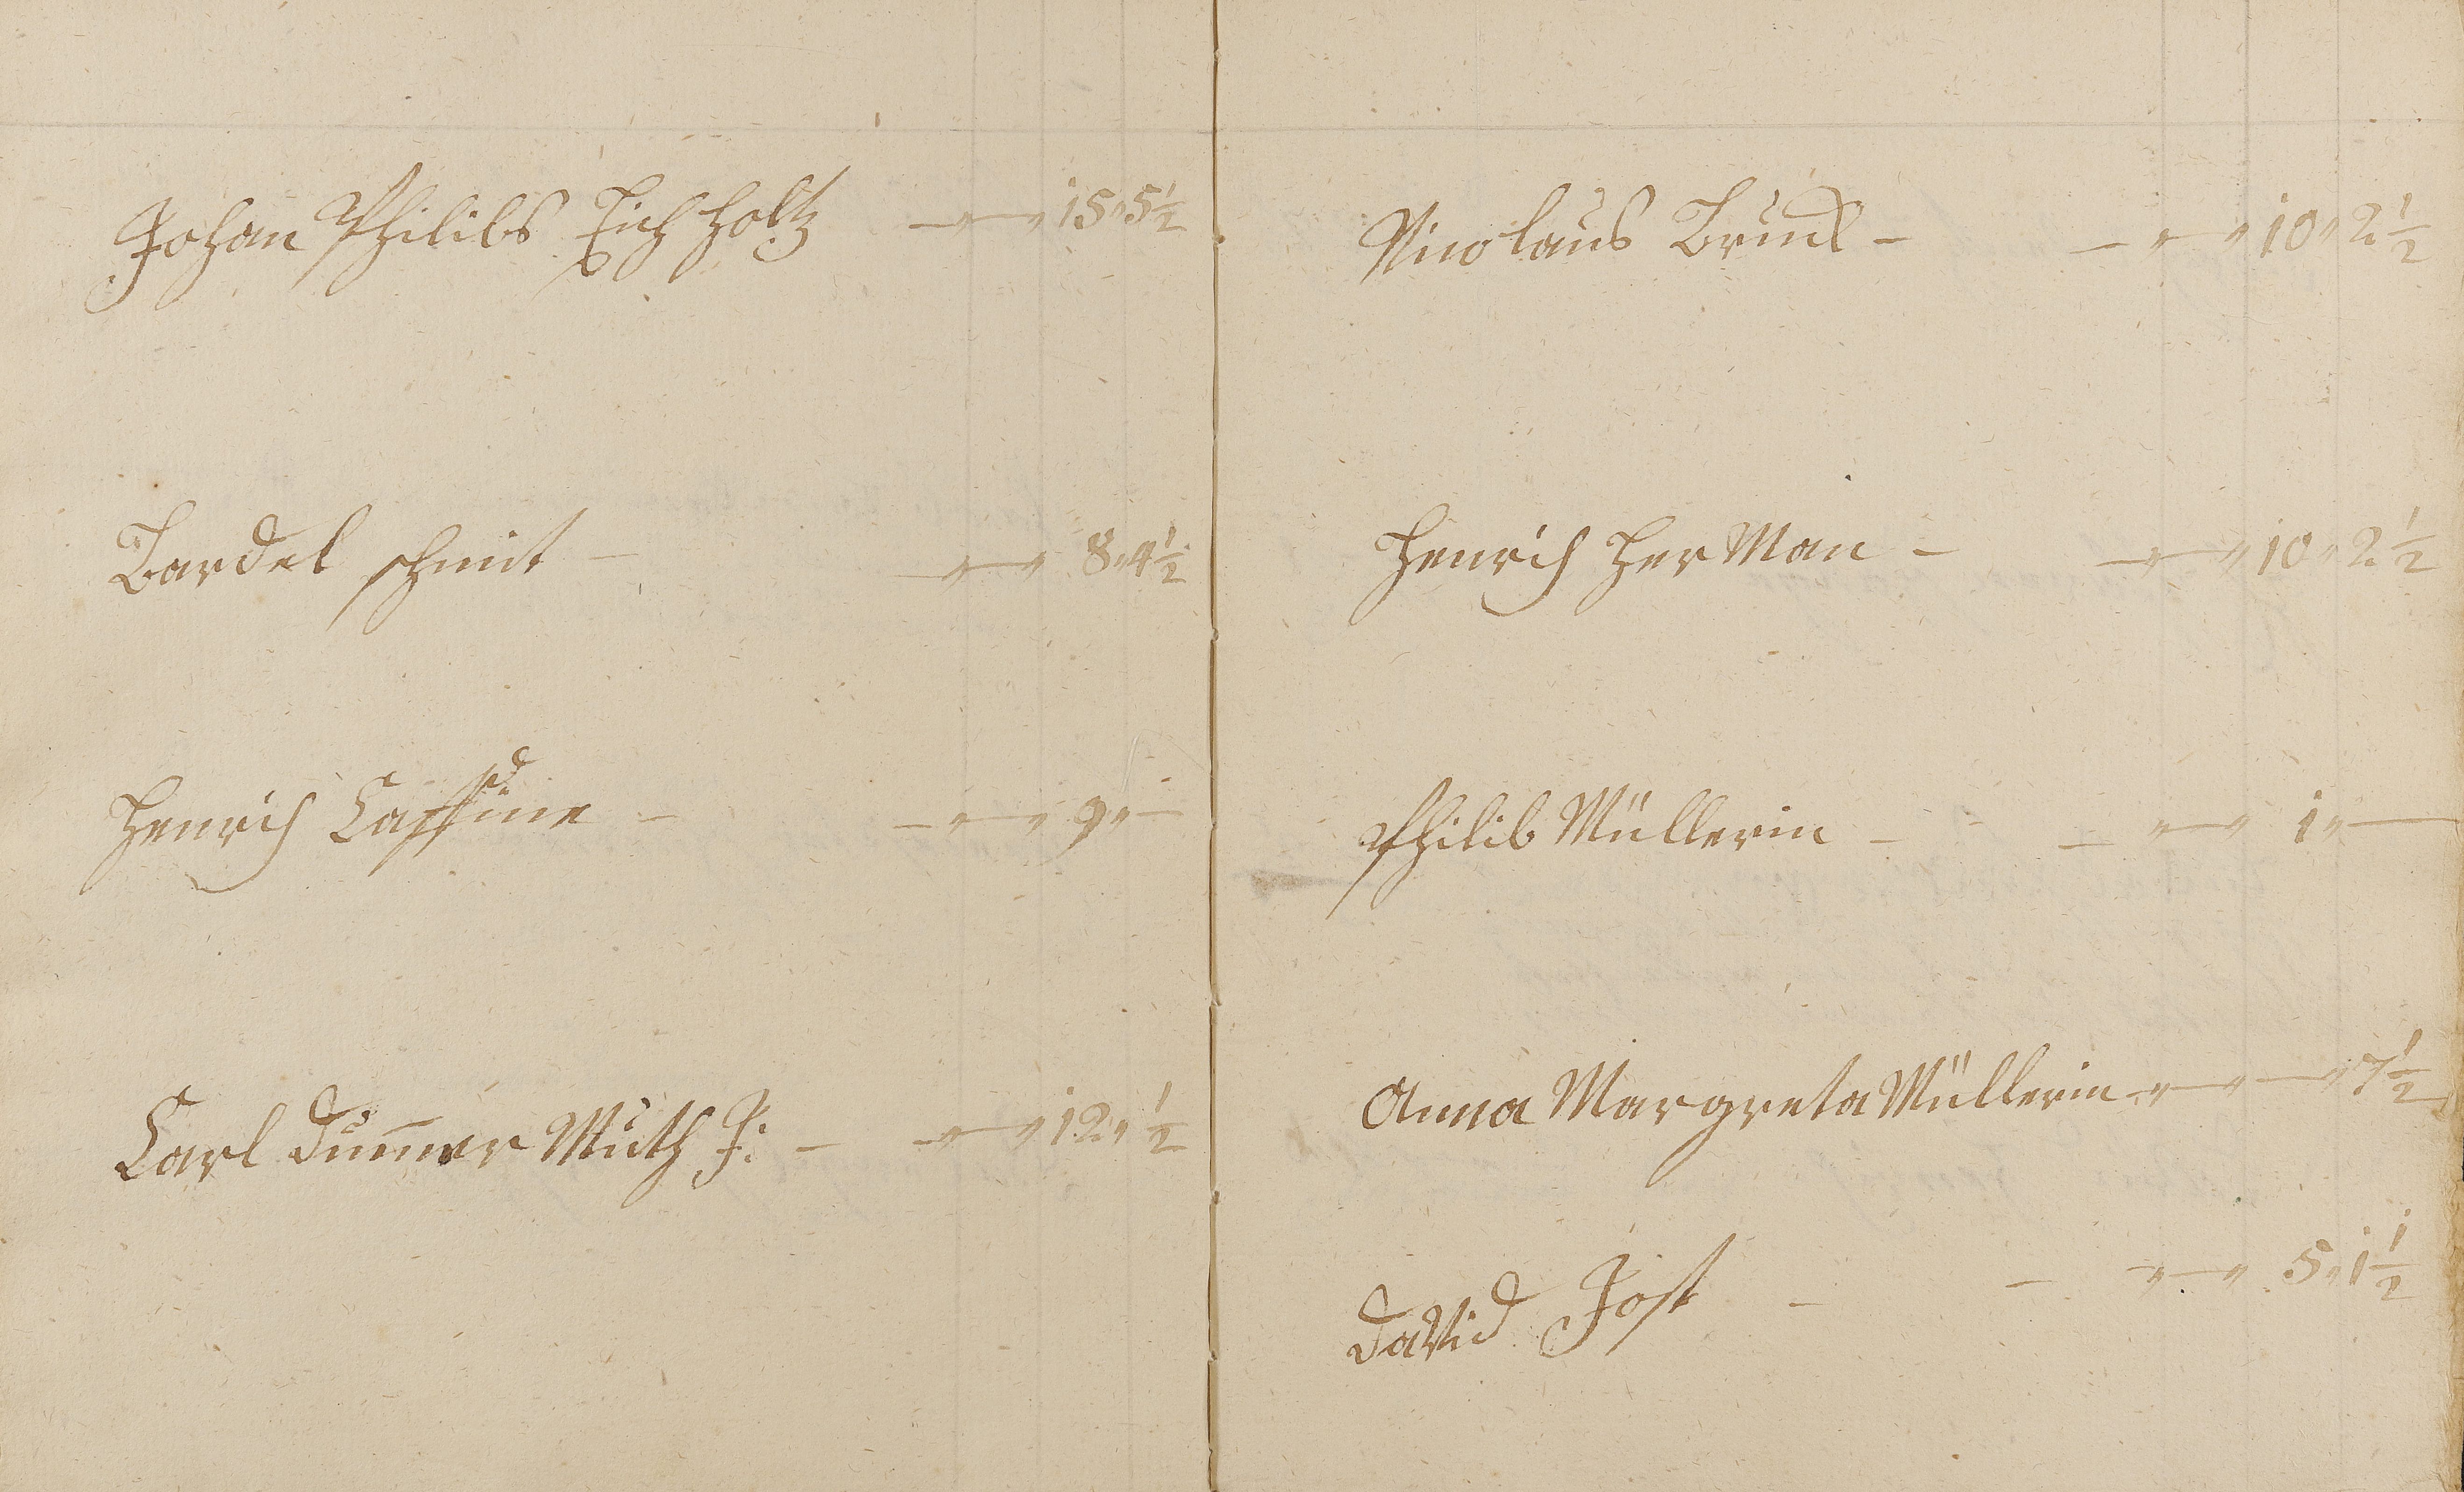 Johan Philibs Eichholtz — „ — „ 15 „ 5 1/2
Bardel schmit — — „ — „ 8 „ 4 1/2
Henrich — — „ — „ 9 „ —
Carl Dum̄er Muth J: — — „ — „ 12 „ 1/2
Nicolaus — — „ — „ 10 „ 2 1/2
Henrich Her Man — — „ — „ 10 „ 2 1/2
Philib Müllerin — — „ — „ 1 „ —
Anna Margreta Müllerin — „ — „ — „ 7 1/2
David Jost — — „ — „ 5 „ 1 1/2